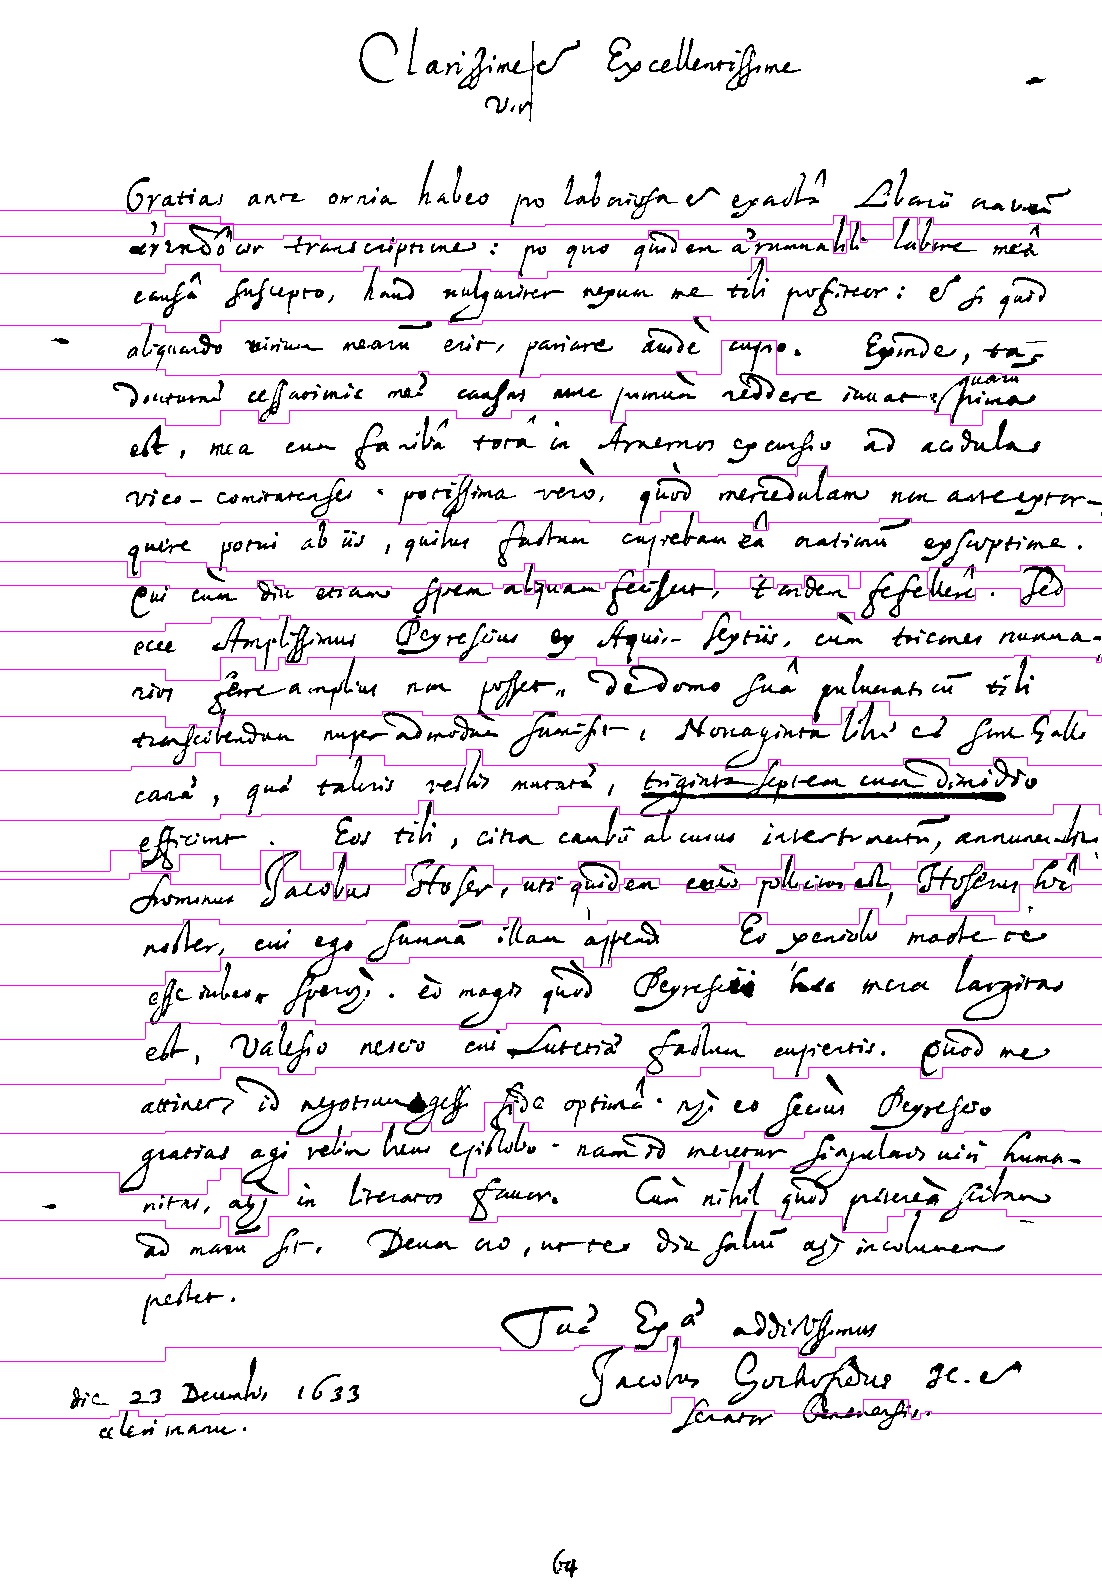 Clarissime & Excellentissime
Vir
Gratias ante omnia habeo pro laboriosa & exactâ Librorū
transcriptione : pro quo quidem ærumnabili labore meâ
causâ suscepto, haud vulgariter nexum me tibi profiteor : & si quid
aliquando virium mearū erit, pariare cupio. Exinde,
cessationis meæ causas nunc reddere iuvat quarū prima
est, mea cum familiâ totâ in Arvernos excursio ad acidulas
vico-comitatenses . potissima verò, quòd mercedulam non ante extor-
quere potui ab iis, quibus factum cupiebam eâ exscriptione.
Qui cùm diu etiam spem aliquam fecissent, tandem fefellere . Sed
ecce Amplissimus Peyrescius ex Aquis-Sextiis, cùm tricones numma-
rios ferre amplius non posset,, de domo suâ pulveraticū tibi
transcribendum nuper admodùm summisit, Nonaginta libræ eæ sunt Gallo
triginta septem cum dimidio
efficiunt . Eos tibi, citra cambii alicuius intertrimentū, annumerabit
Dominus Jacobus Hoser, uti quidem pollicitus est, Hoserus hîc
noster, cui ego summā illam appendi Eo xeniolo macte te
esse iubeo spero . eò magis quòd Peyrescii mera largitas
est, Valesio nescio cui Lutetiæ factum cupientis. Quod me
attinet, id negotium gessi fide optimâ . eo seciùs Peyrescio
gratias agi velim tuis epistolio . nam id meretur singularis viri huma-
nitas, atq; in literatos favor. Cùm nihil quod præterea scribam
ad manū sit. Deum oro, ut te diu salvū atq; incolumem
præstet.
Tuæ Exæ addictissimus
Jacobus Gothofredus JC. &
Senator Genevensis.
die 23 Decembris 1633
celeri manu.
64